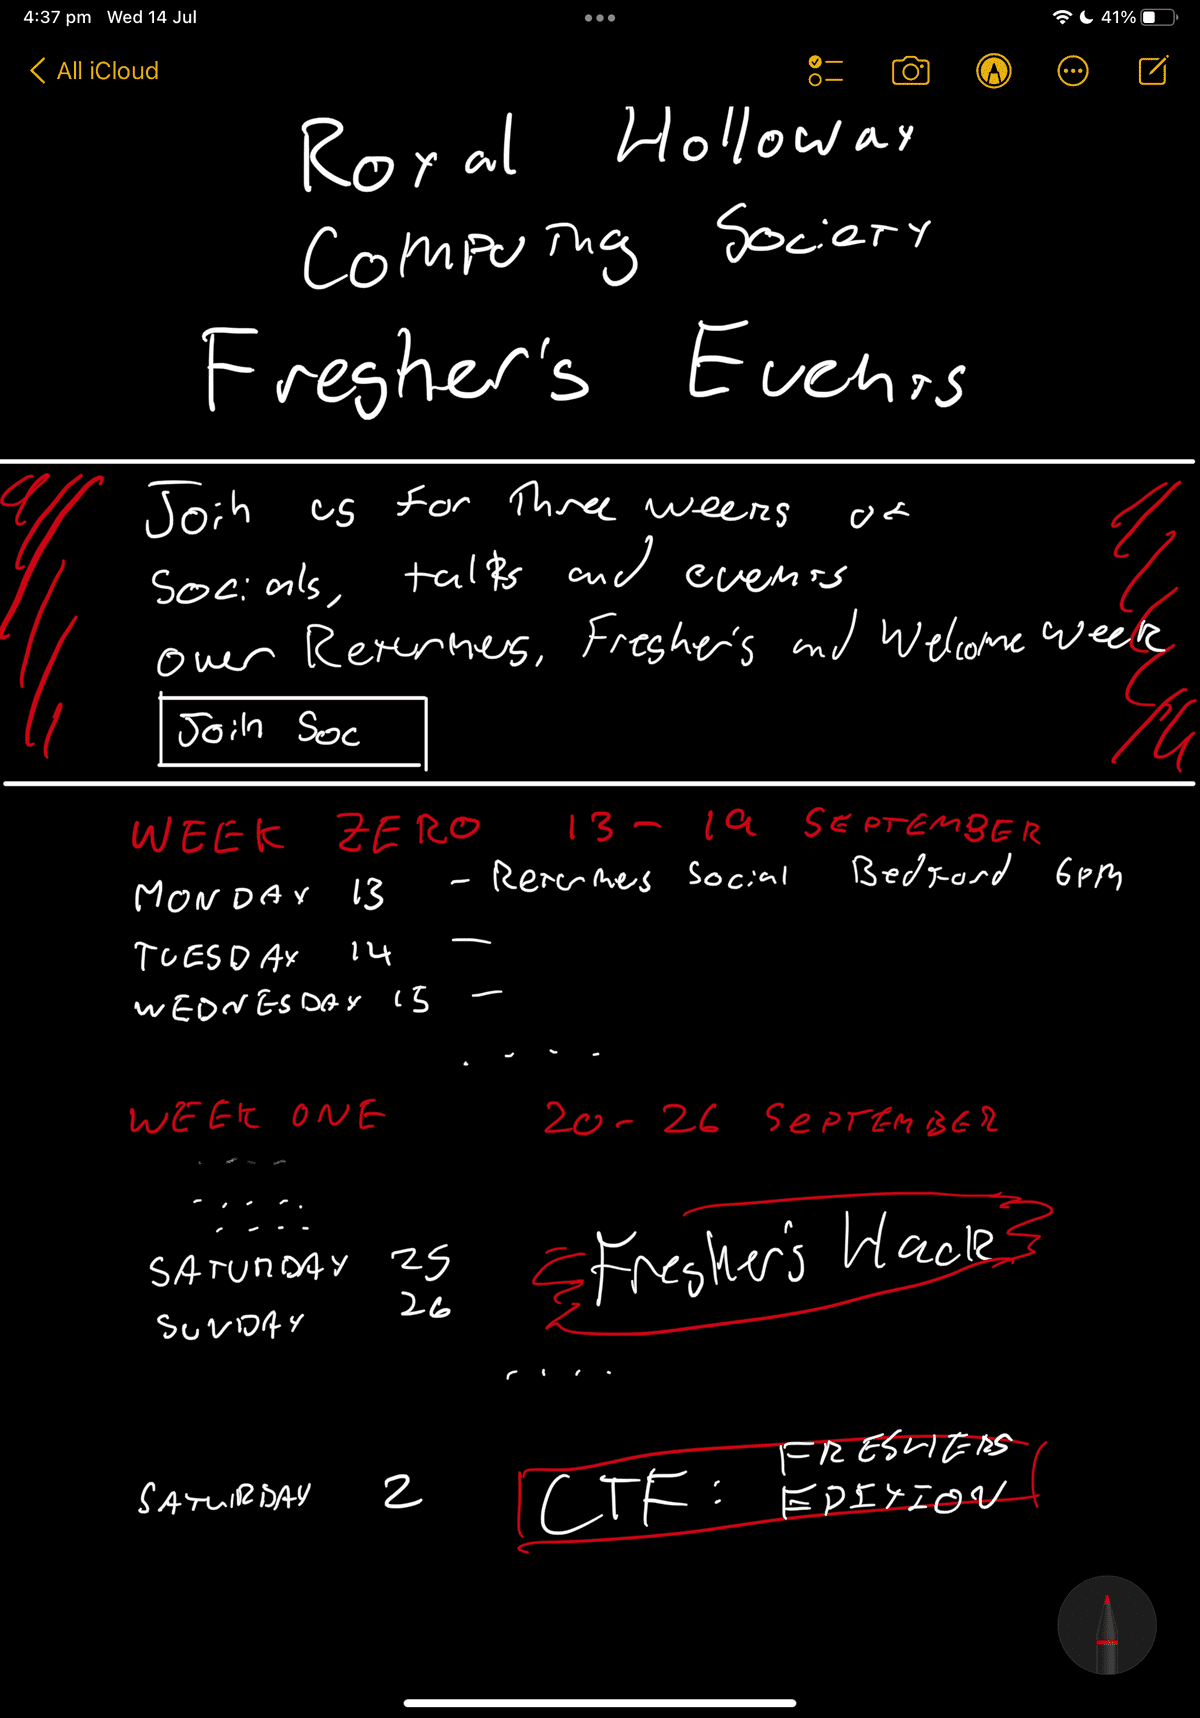 4:37 pm Wed 14 Jul
41%
All iCloud
Royal Holloway
Computing Society
Fresher's Events
Join us for three weeks of
socials, talks and events
over Returners, Fresher's and Welcome week
Join Soc
WEEK ZERO 13 - 19 SEPTEMBER
MONDAY 13 - Returners Social Bedford 6pm
TUESDAY 14 -
WEDNESDAY 15 -
....
WEEK ONE 20 - 26 SEPTEMBER
....
....
....
SATURDAY 25 Fresher's Hack
SUNDAY 26
....
SATURDAY 2 CTF: FRESHERS
EDITION